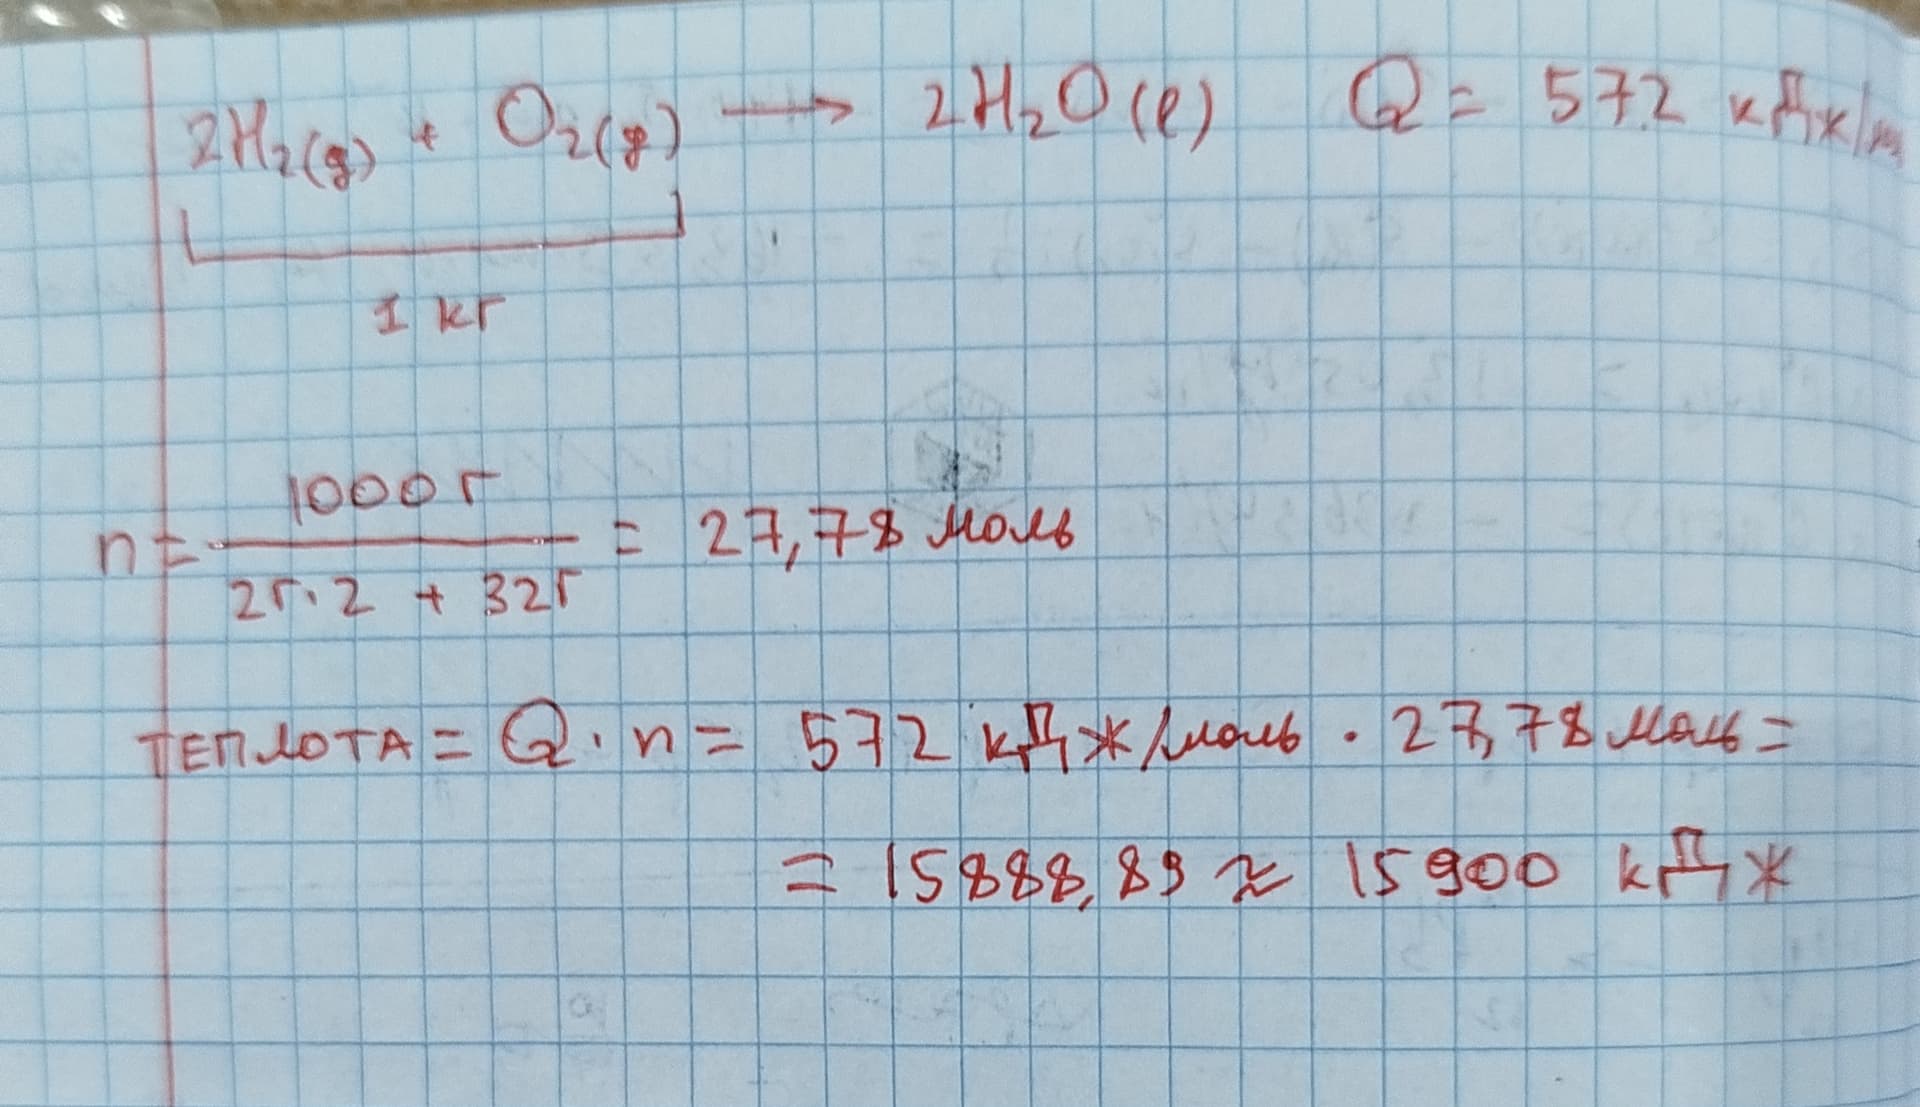 2H₂(g) + O₂(g) → 2H₂O(l) Q = 572 кДж/м
1 кг
n = 1000 г / (2г·2 + 32г) = 27,78 моль
ТЕПЛОТА = Q · n = 572 кДж/моль · 27,78 моль =
= 15888,89 ≈ 15900 кДж